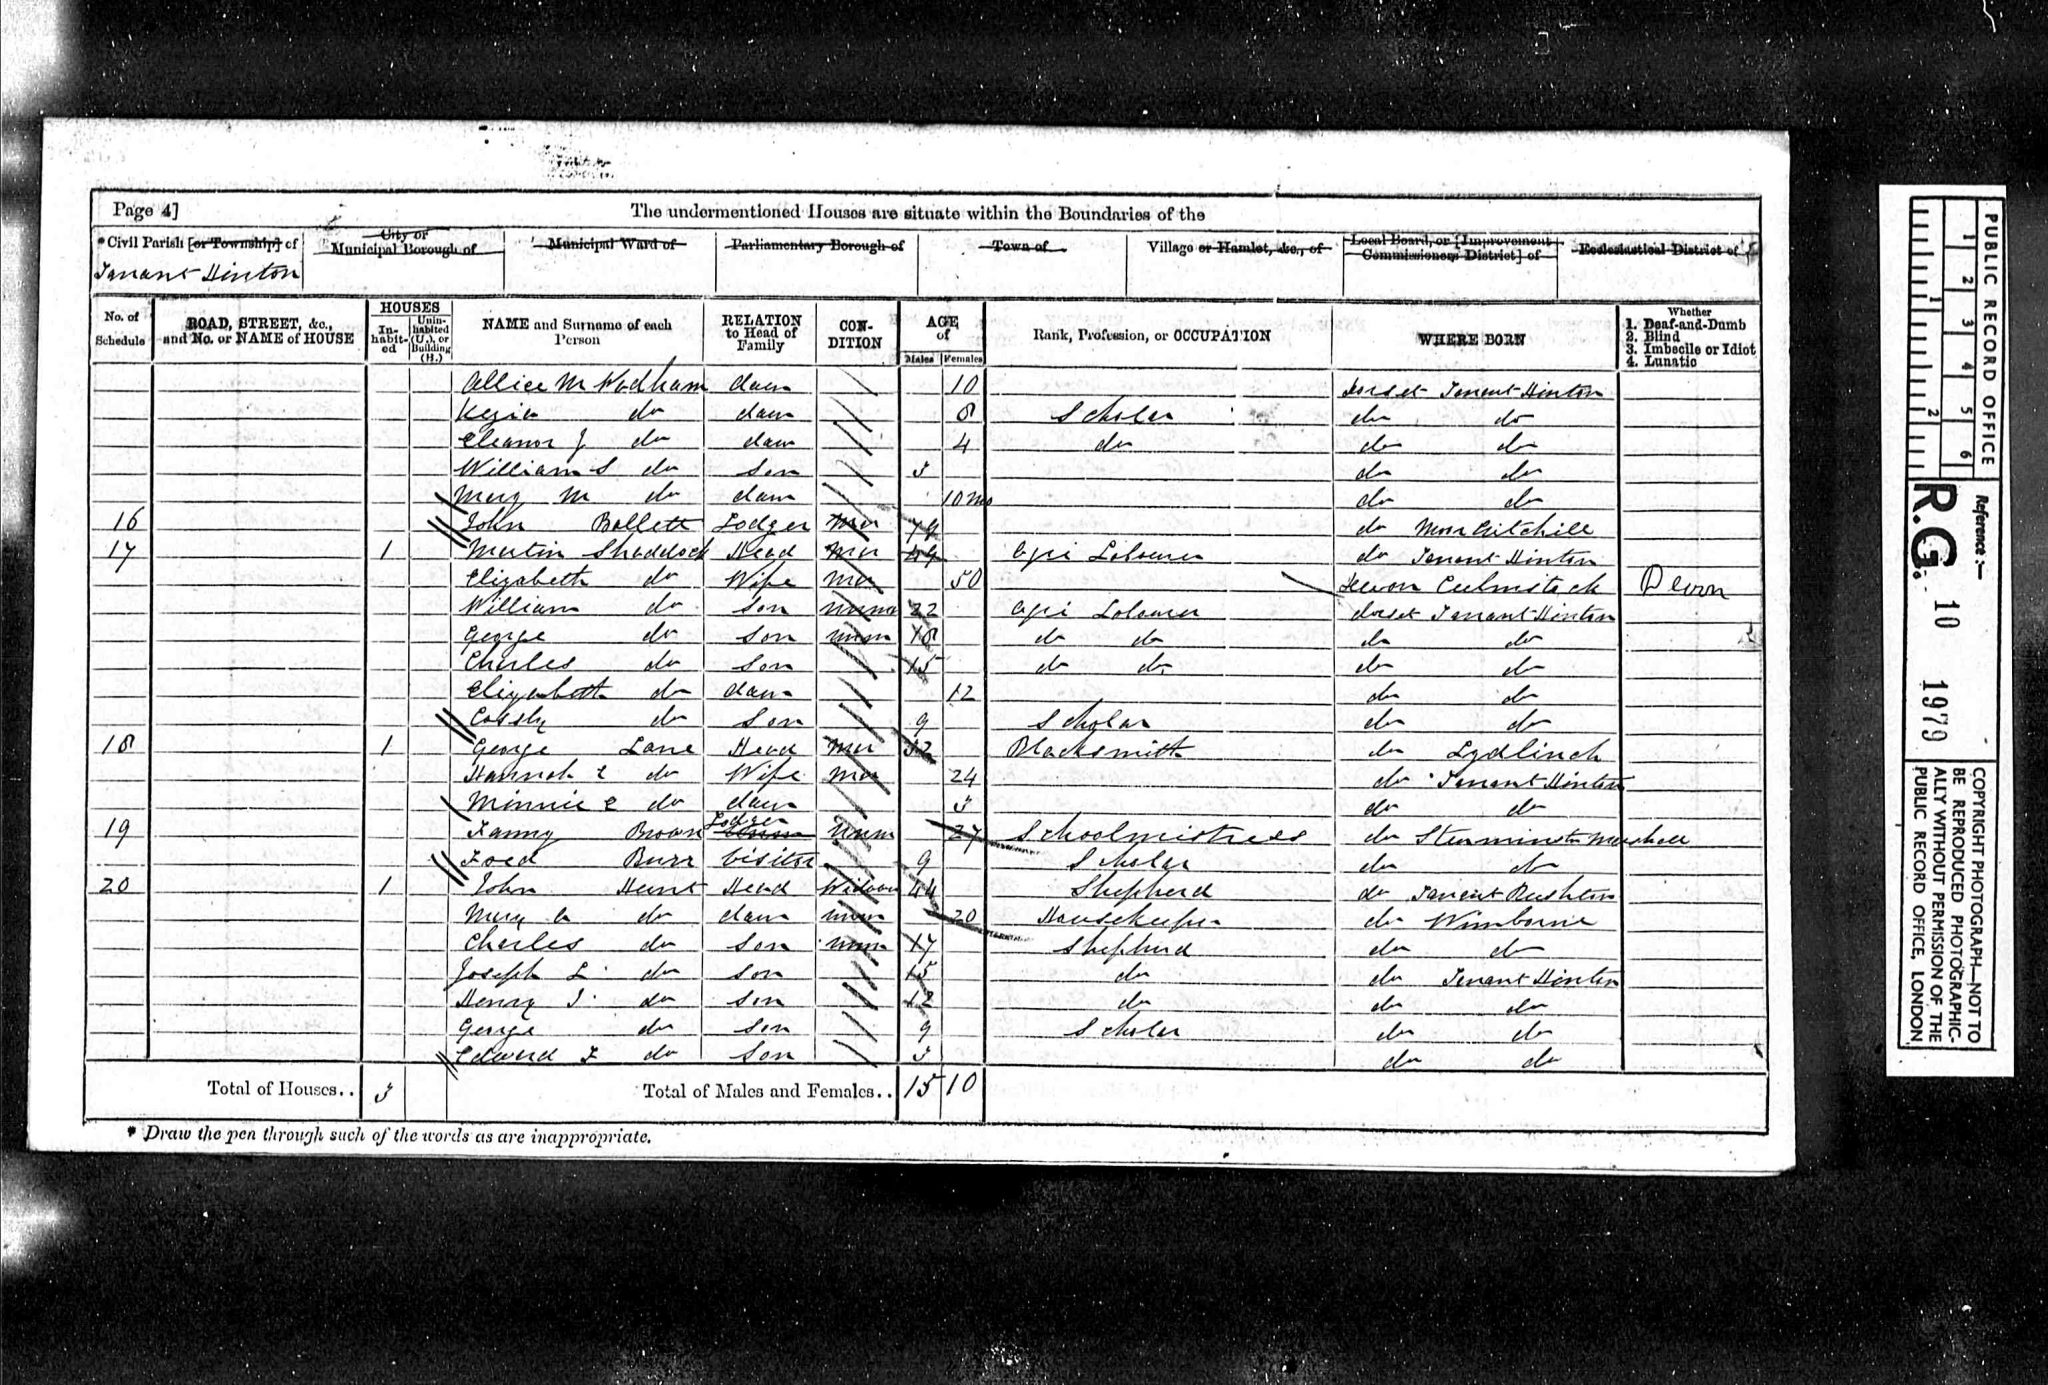 Page 4]
The undermentioned Houses are situate within the Boundaries of the
*Civil Parish [or Township] of
City or Municipal Borough of
Municipal Ward of
Parliamentary Borough of
Town of
Village or Hamlet, &c., of
Local Board, or [Improvement Commissioners District] of
Ecclesiastical District of
Tarrant Hinton
No. of Schedule
ROAD, STREET, &c., and No. or NAME of HOUSE
HOUSES
In-habit-ed
Unin-habited (U.), or Building (B.)
NAME and Surname of each Person
RELATION to Head of Family
CON-DITION
AGE of
Males
Females
Rank, Profession, or OCCUPATION
WHERE BORN
Whether
1. Deaf-and-Dumb
2. Blind
3. Imbecile or Idiot
4. Lunatic
Allice M Wadham daur 10 Dorset Tarrant Hinton
Kezia do daur 8 Scholar do do
Eleanor J do daur 4 do do do
William S do Son 3 do do
Mary M do daur 10 mo do do
16 John Bollett Lodger Mar 79 do Mon Gitchill
17 1 Martin Shaddock Head Mar 49 Agri Labourer do Tarrant Hinton
Elizabeth do Wife Mar 50 Devon Culmstock Devon
William do Son unmar 22 Agri Labourer dorset Tarrant Hinton
George do Son unm 18 do do do do
Charles do Son 15 do do do do
Elizabeth do daur 12 do do
Cossly do Son 9 Scholar do do
18 1 George Lane Head Mar 32 Blacksmith do Lydlinch
Hannah E do Wife Mar 24 do Tarrant Hinton
Minnie E do daur 3 do do
19 Fanny Brown Lodger unm 27 Schoolmistress do Sturminster Marshall
Fred Burr Visitor 9 Scholar do do
20 1 John Hunt Head Widower 44 Shepherd do Tarrant Rushton
Mary A do daur unm 20 Housekeeper do Wimborne
Charles do Son unm 17 Shepherd do do
Joseph L do Son 15 do do Tarrant Hinton
Henry J do Son 12 do do do
George do Son 9 Scholar do do
Edward F do Son 3 do do
Total of Houses.. 3
Total of Males and Females.. 15 10
* Draw the pen through such of the words as are inappropriate.
PUBLIC RECORD OFFICE
1 2 3 4 5 6
1 2
Reference :-
R.G. 10 1979
COPYRIGHT PHOTOGRAPH—NOT TO
BE REPRODUCED PHOTOGRAPHIC-
ALLY WITHOUT PERMISSION OF THE
PUBLIC RECORD OFFICE, LONDON